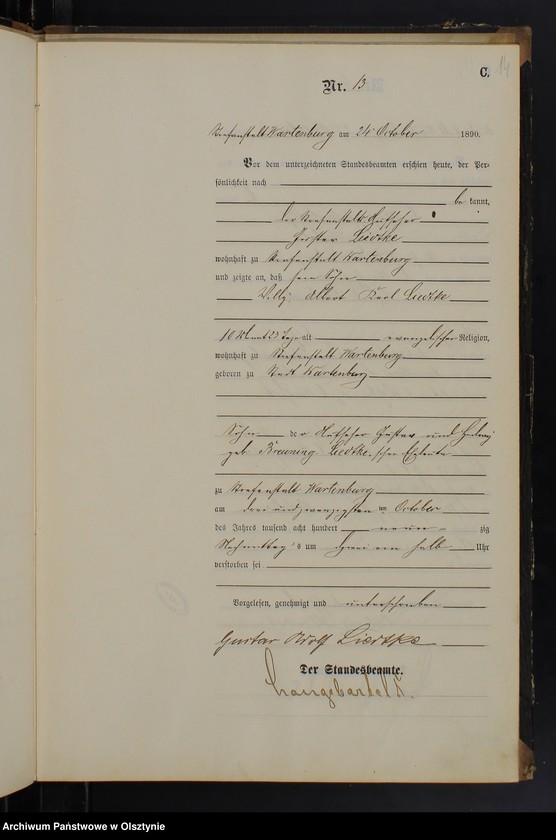 C. 14
Nr. 13
Strafanstalt Wartenburg am 24 October 1890.
Vor dem unterzeichneten Standesbeamten erschien heute, der Per-
sönlichkeit nach
be kannt,
der Strafanstalts-Aufseher
Gustav Liedtke
wohnhaft zu Strafanstalt Wartenburg
und zeigte an, daß sein Sohn
Willy Albert Karl Liedtke
10 Monat 23 Tage alt evangelischer Religion,
wohnhaft zu Strafanstalt Wartenburg
geboren zu Stadt Wartenburg
Sohn der Aufseher Gustav und Hedwig
geb. Breuning Liedtke'schen Eheleute
zu Strafanstalt Wartenburg
am drei und zwanzigsten October
des Jahres tausend acht hundert neun zig
Nachmittag s um ein halb Uhr
verstorben sei
Vorgelesen, genehmigt und unterschrieben
Gustav Adolf Liedtke
Der Standesbeamte.
Archiwum Państwowe w Olsztynie